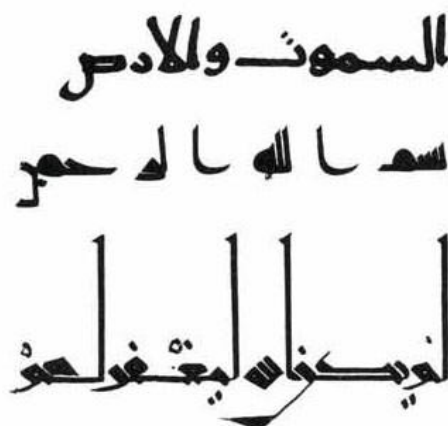 السموت والارض
بسم الله الرحمن
لم يكن الله ليغفر لهم